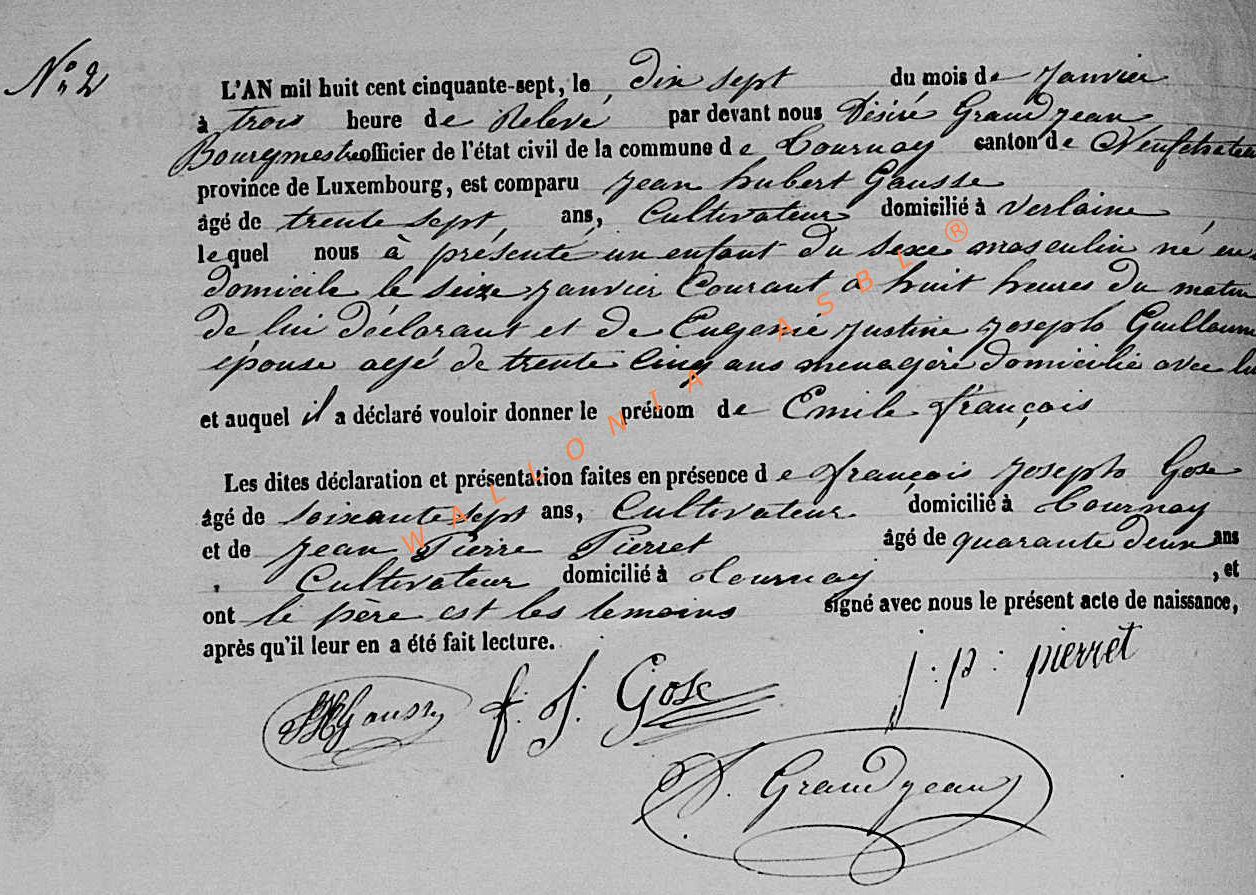 N° 2
L'AN mil huit cent cinquante-sept, le dix sept du mois de Janvier
à trois heure de Relevé par devant nous Désiré Grandjean
Bourgmestre officier de l'état civil de la commune de Tournay canton de Neufchateau
province de Luxembourg, est comparu Jean hubert Gausse
âgé de trente sept, ans, Cultivateur domicilié à Verlaine
lequel nous à présenté un enfant du sexe masculin né en
domicile le seize Janvier Courant à huit heures du matin
de lui déclarant et de Eugenie Justine Joseph Guillaume
épouse agé de trente cinq ans menagère domicilié avec lui
et auquel il a déclaré vouloir donner le prénom de Emile françois
Les dites déclaration et présentation faites en présence de françois Joseph Gose
âgé de soixante sept ans, Cultivateur domicilié à Tournay
et de Jean Pierre Pierret âgé de quarante deux ans
, Cultivateur domicilié à Tournay , et
ont le père est les temoins signé avec nous le présent acte de naissance,
après qu'il leur en a été fait lecture.
JHGausse f. J. Gose j. p. pierret
D. Grandjean
WALLONIA ASBL ®